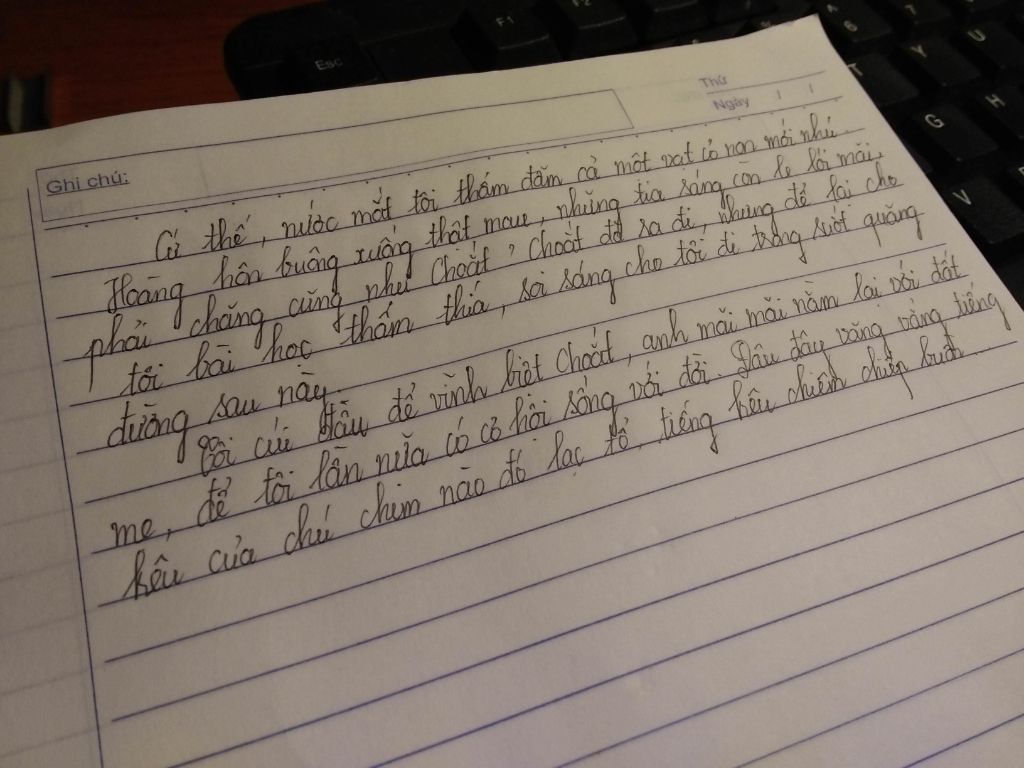 Esc
F1
F2
6
T
Y
U
G
H
V
Thứ
Ngày / /
Ghi chú:
Cứ thế, nước mắt tôi thấm đẫm cả một vạt cỏ non mới nhú.
Hoàng hôn buông xuống thật mau, những tia sáng còn le lói mãi,
phải chăng cũng như Choắt, Choắt đã ra đi, nhưng để lại cho
tôi bài học thấm thía, soi sáng cho tôi đi trong suốt quãng
đường sau này.
Tôi cúi đầu để vĩnh biệt Choắt, anh mãi mãi nằm lại với đất
mẹ, để tôi lần nữa có cơ hội sống với đời. Đâu đây văng vẳng tiếng
kêu của chú chim nào đó lạc tổ, tiếng kêu chiêm chiếp buồn.